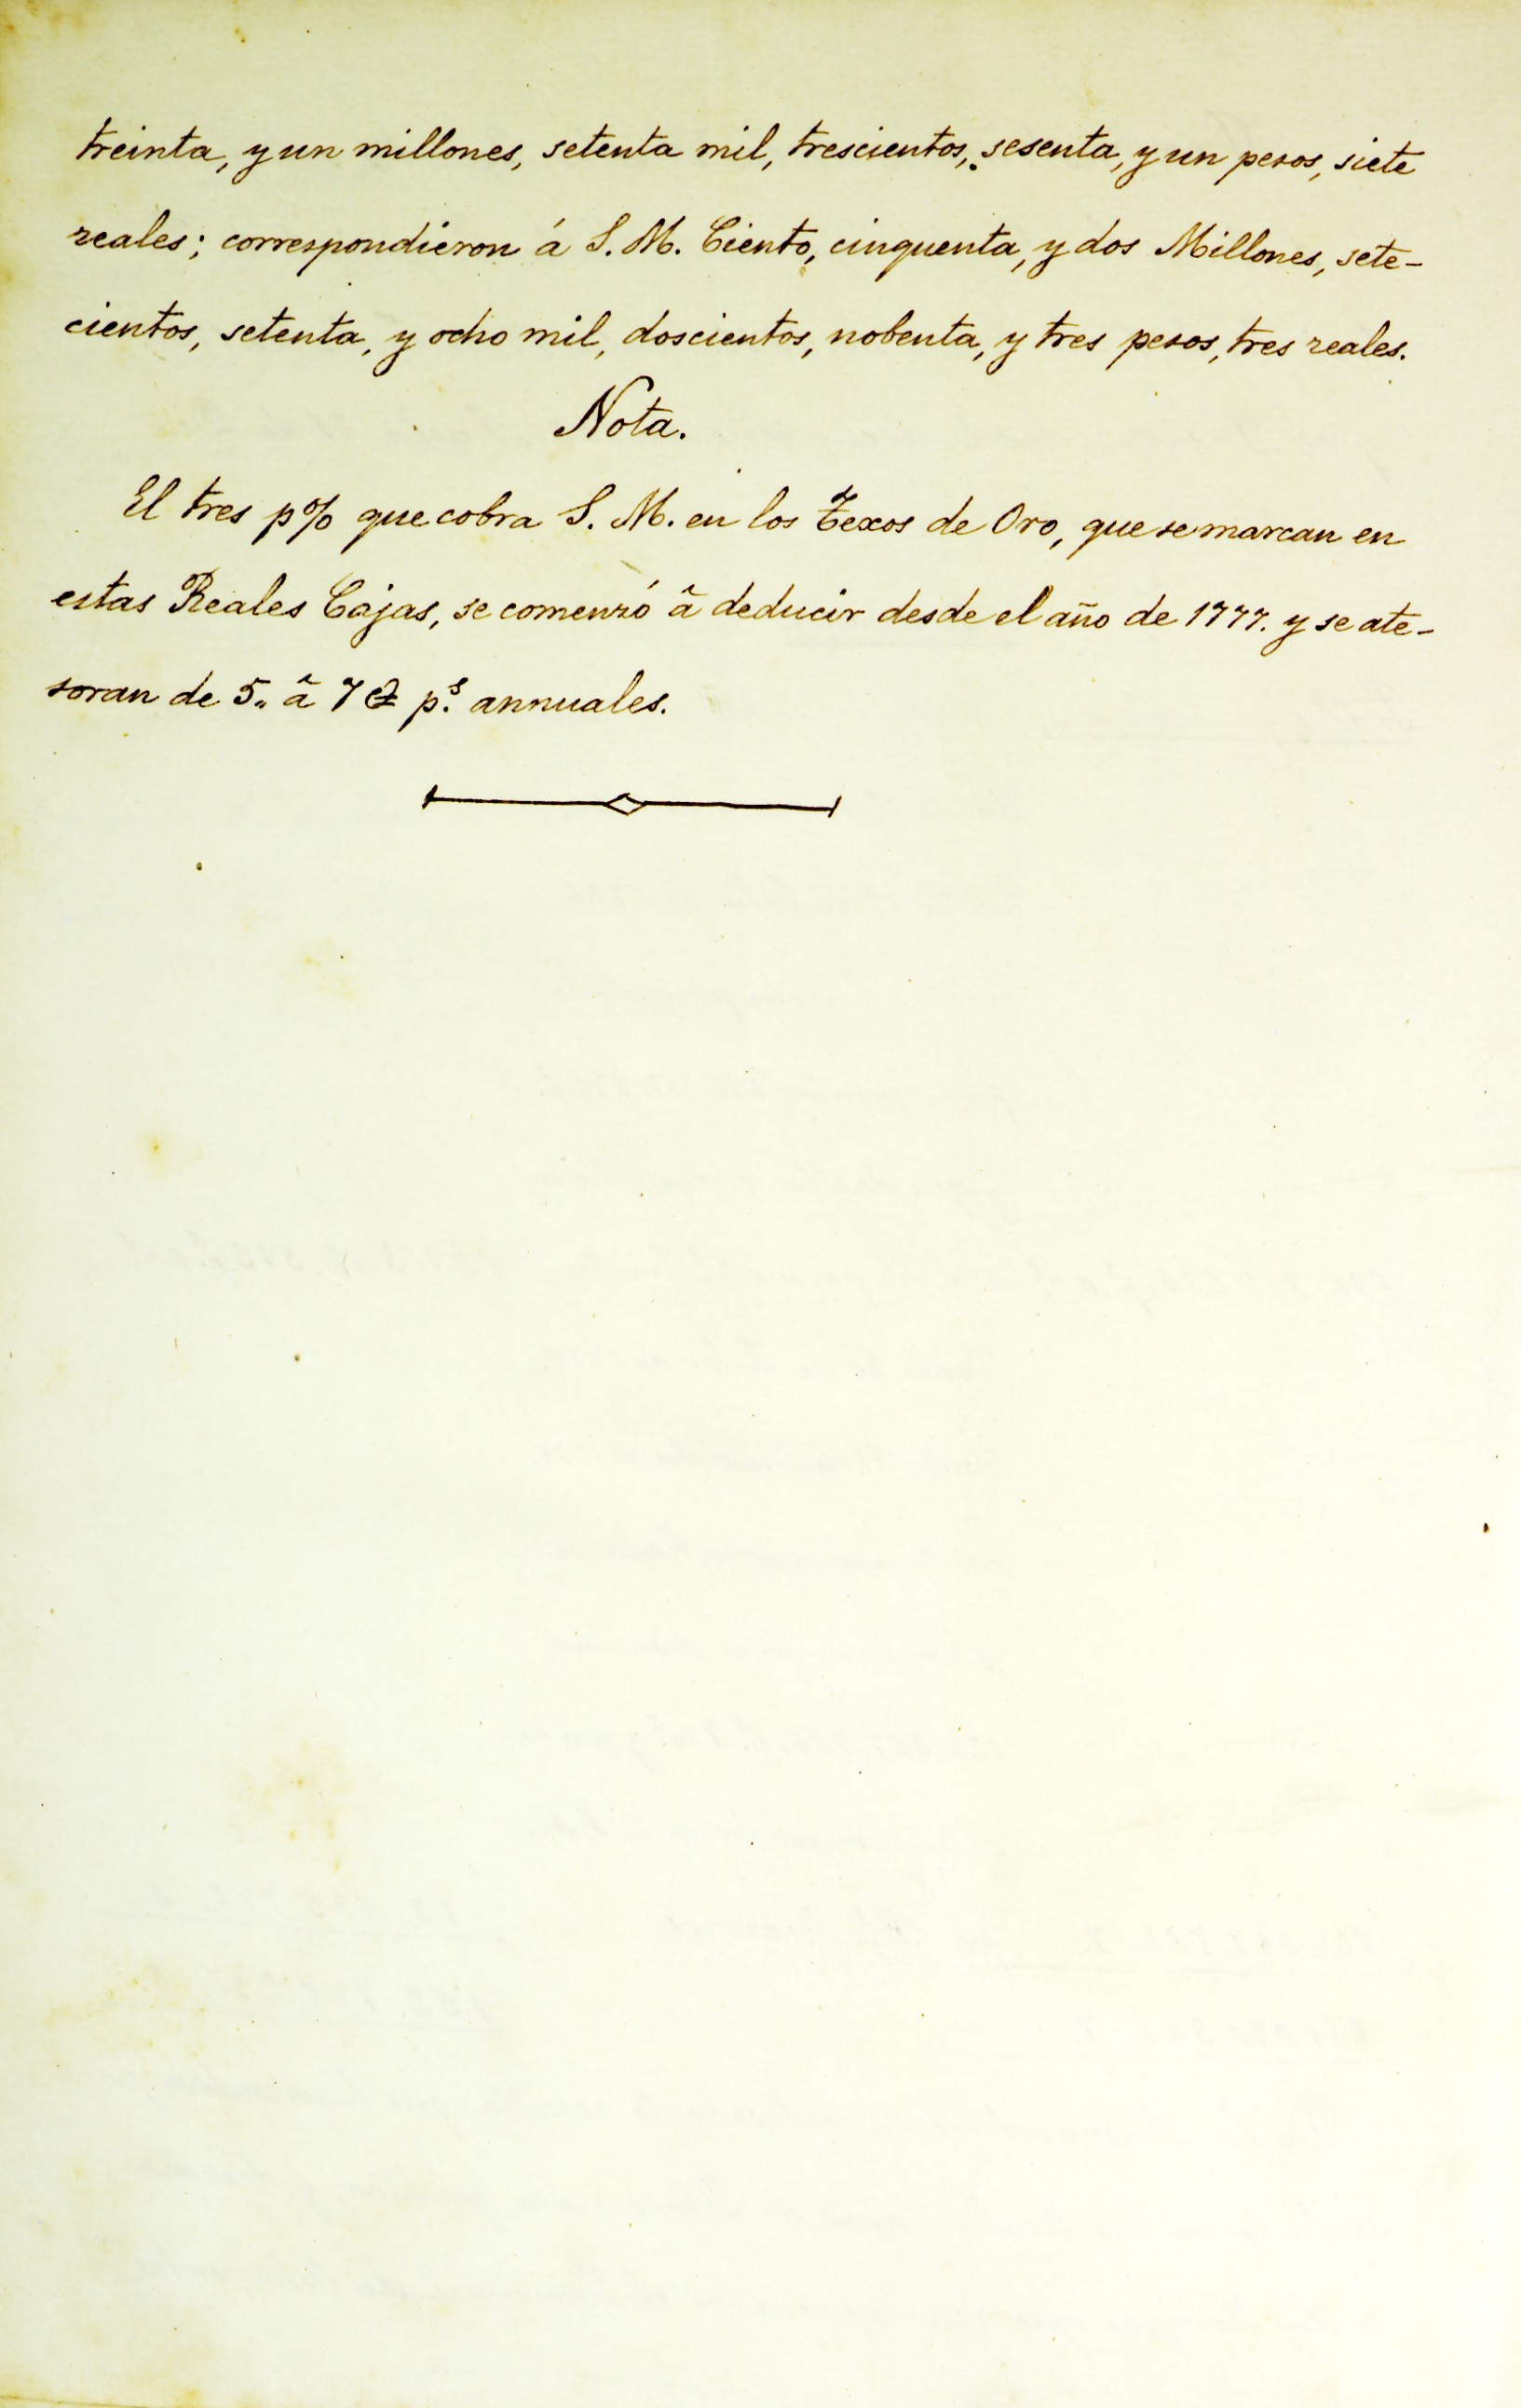 treinta, y un millones, setenta mil, trescientos, sesenta, y un pesos, siete
reales; correspondieron á S. M. Ciento, cinquenta, y dos Millones, sete-
cientos, setenta, y ocho mil, doscientos, nobenta, y tres pesos, tres reales.
Nota.
El tres p% que cobra S. M. en los Texos de Oro, que se marcan en
estas Reales Cajas, se comenzó â deducir desde el año de 1777. y se ate-
soran de 5„ â 7 p.s annuales.